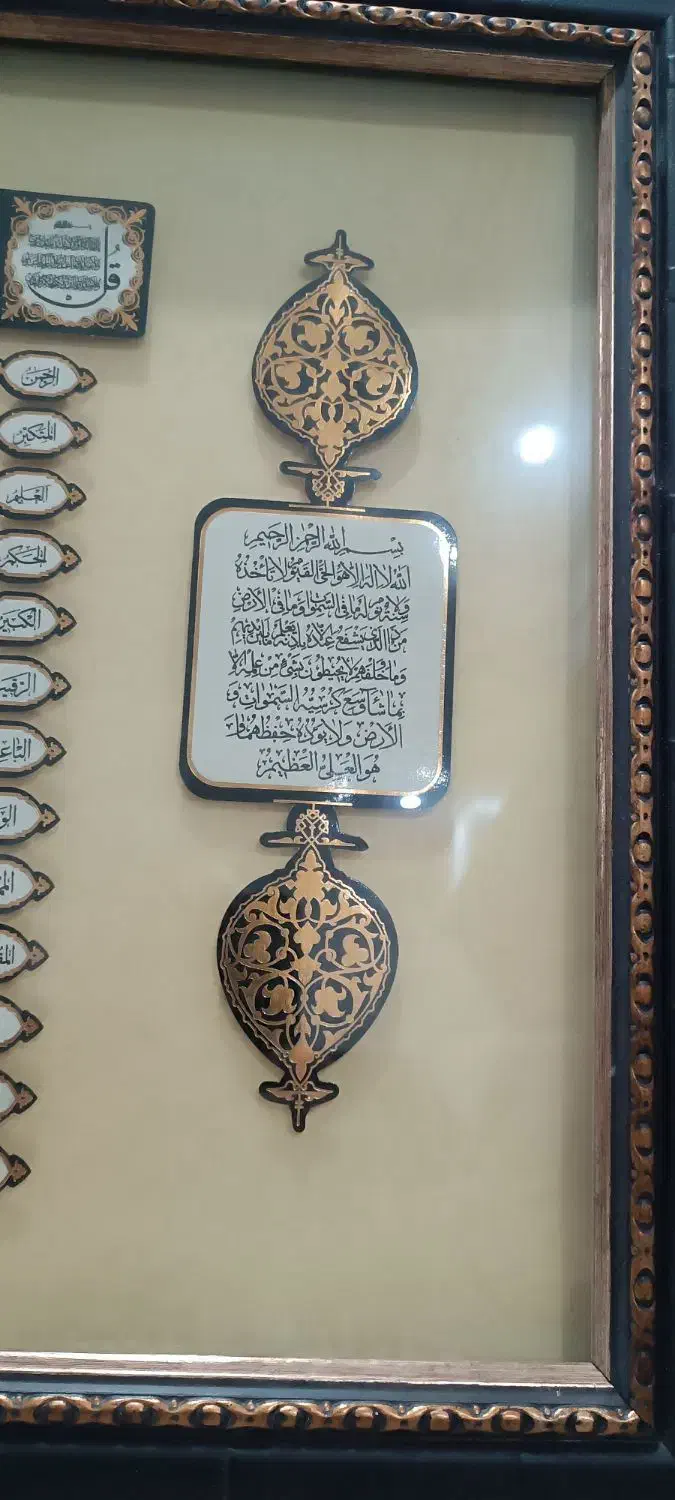 بسم الله الرحمن الرحيم
الله لا اله الا هو الحي القيوم لا تأخذه
سنة ولا نوم له ما في السموات وما في الأرض
من ذا الذي يشفع عنده الا باذنه يعلم ما بين ايديهم
وما خلفهم ولا يحيطون بشيء من علمه الا
بما شاء وسع كرسيه السموات و
الأرض ولا يؤده حفظهما و
هو العلي العظيم
قل
الرحمن
المتكبر
العليم
الحكيم
الكبير
الرقيب